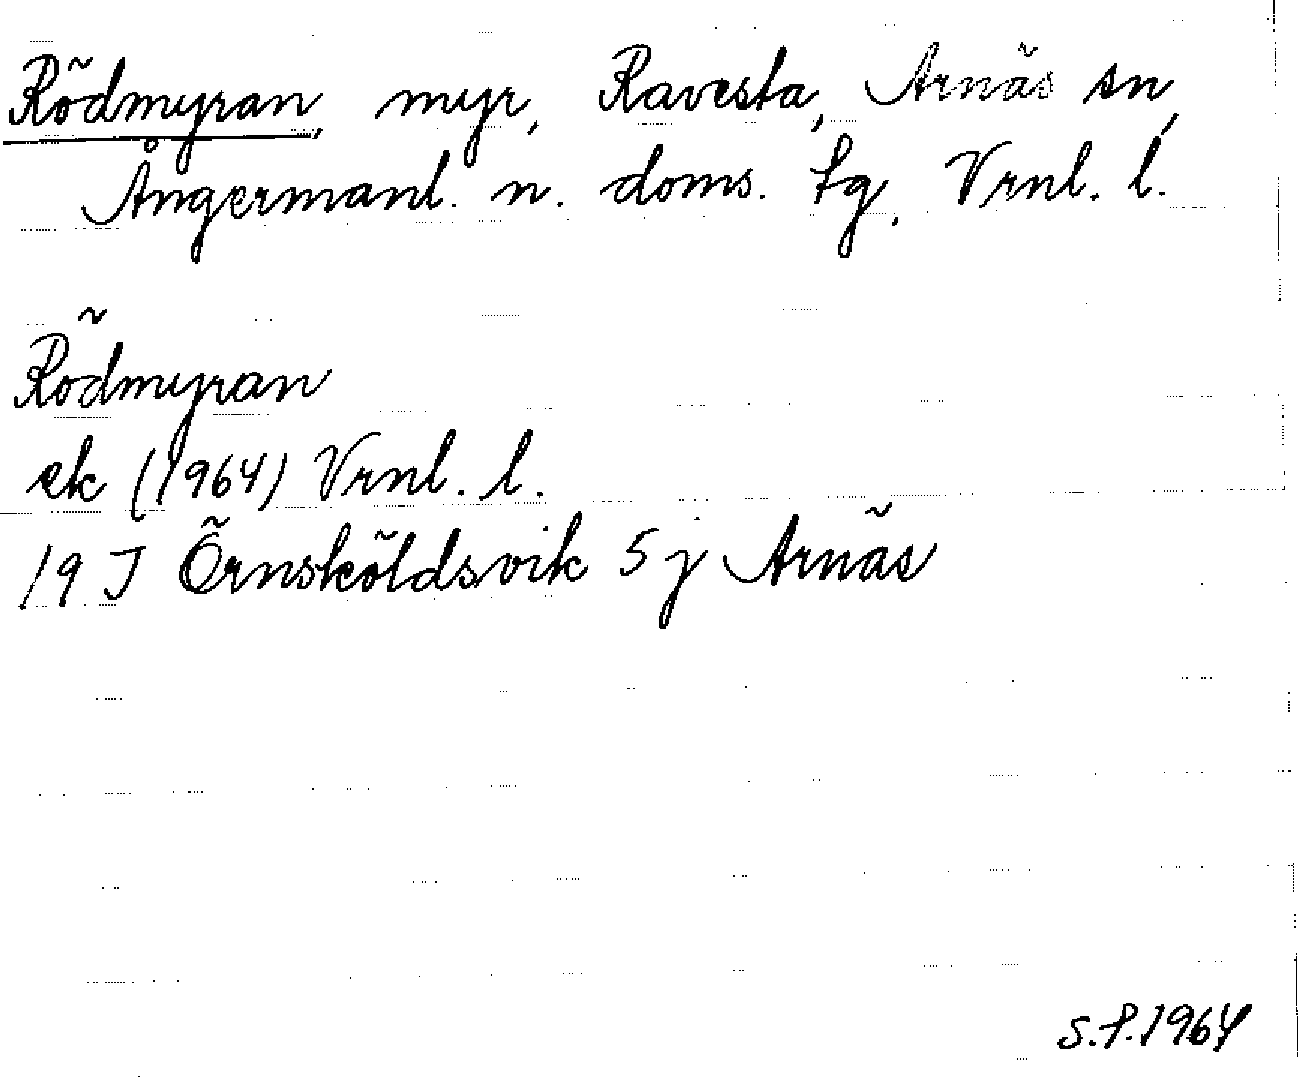 Rödmyran, myr, Ravesta, Arnäs sn,
Ångermanl. n. doms. tg, Vrnl. l.
Rödmyran
ek (1964) Vrnl. l.
19 J Örnsköldsvik 5 j Arnäs
S.P.1964